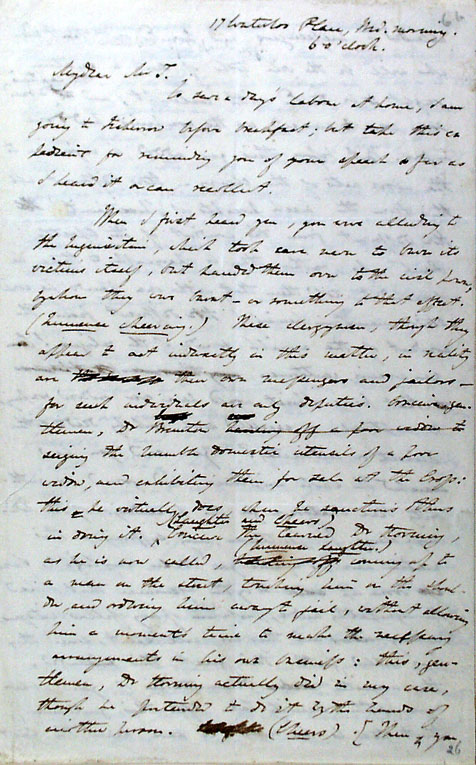 17 Waterloo Place, Wed. morning.
6 o'clock.
My dear Mr T.
To save a day's labour at home, I am
going to before breakfast; but take this ex-
pedient for reminding you of your speech so far as
I heard it or can recollect.
When I first heard you, you were alluding to
the Inquisition, which took care never to burn its
victims itself, but handed them over to the civil power,
by whom they were burnt – or something to that effect.
(Immense cheering.) These clergymen, though they
appear to act indirectly in this matter, in reality
are their own messengers and jailors –
for such individuals are only deputies. Conceive, gen-
tlemen, Dr Brunton hauling off a poor widow to
seizing the humble domestic utensils of a poor
widow, and exhibiting them for sale at the Cross:
this he virtually does when he sanctions others
in doing it. (Laughter and Cheers) Conceive the learned Dr
as he is now called, (Immense laughter.) coming up to
a man on the street, touching him on the shoul-
der, and ordering him away to jail, without allowing
him a moment's time to make the necessary
arrangements in his own business: this, gen-
tlemen, Dr actually did in my case,
though he pretended to do it by the hands of
another person. (Cheers). [Then you
26